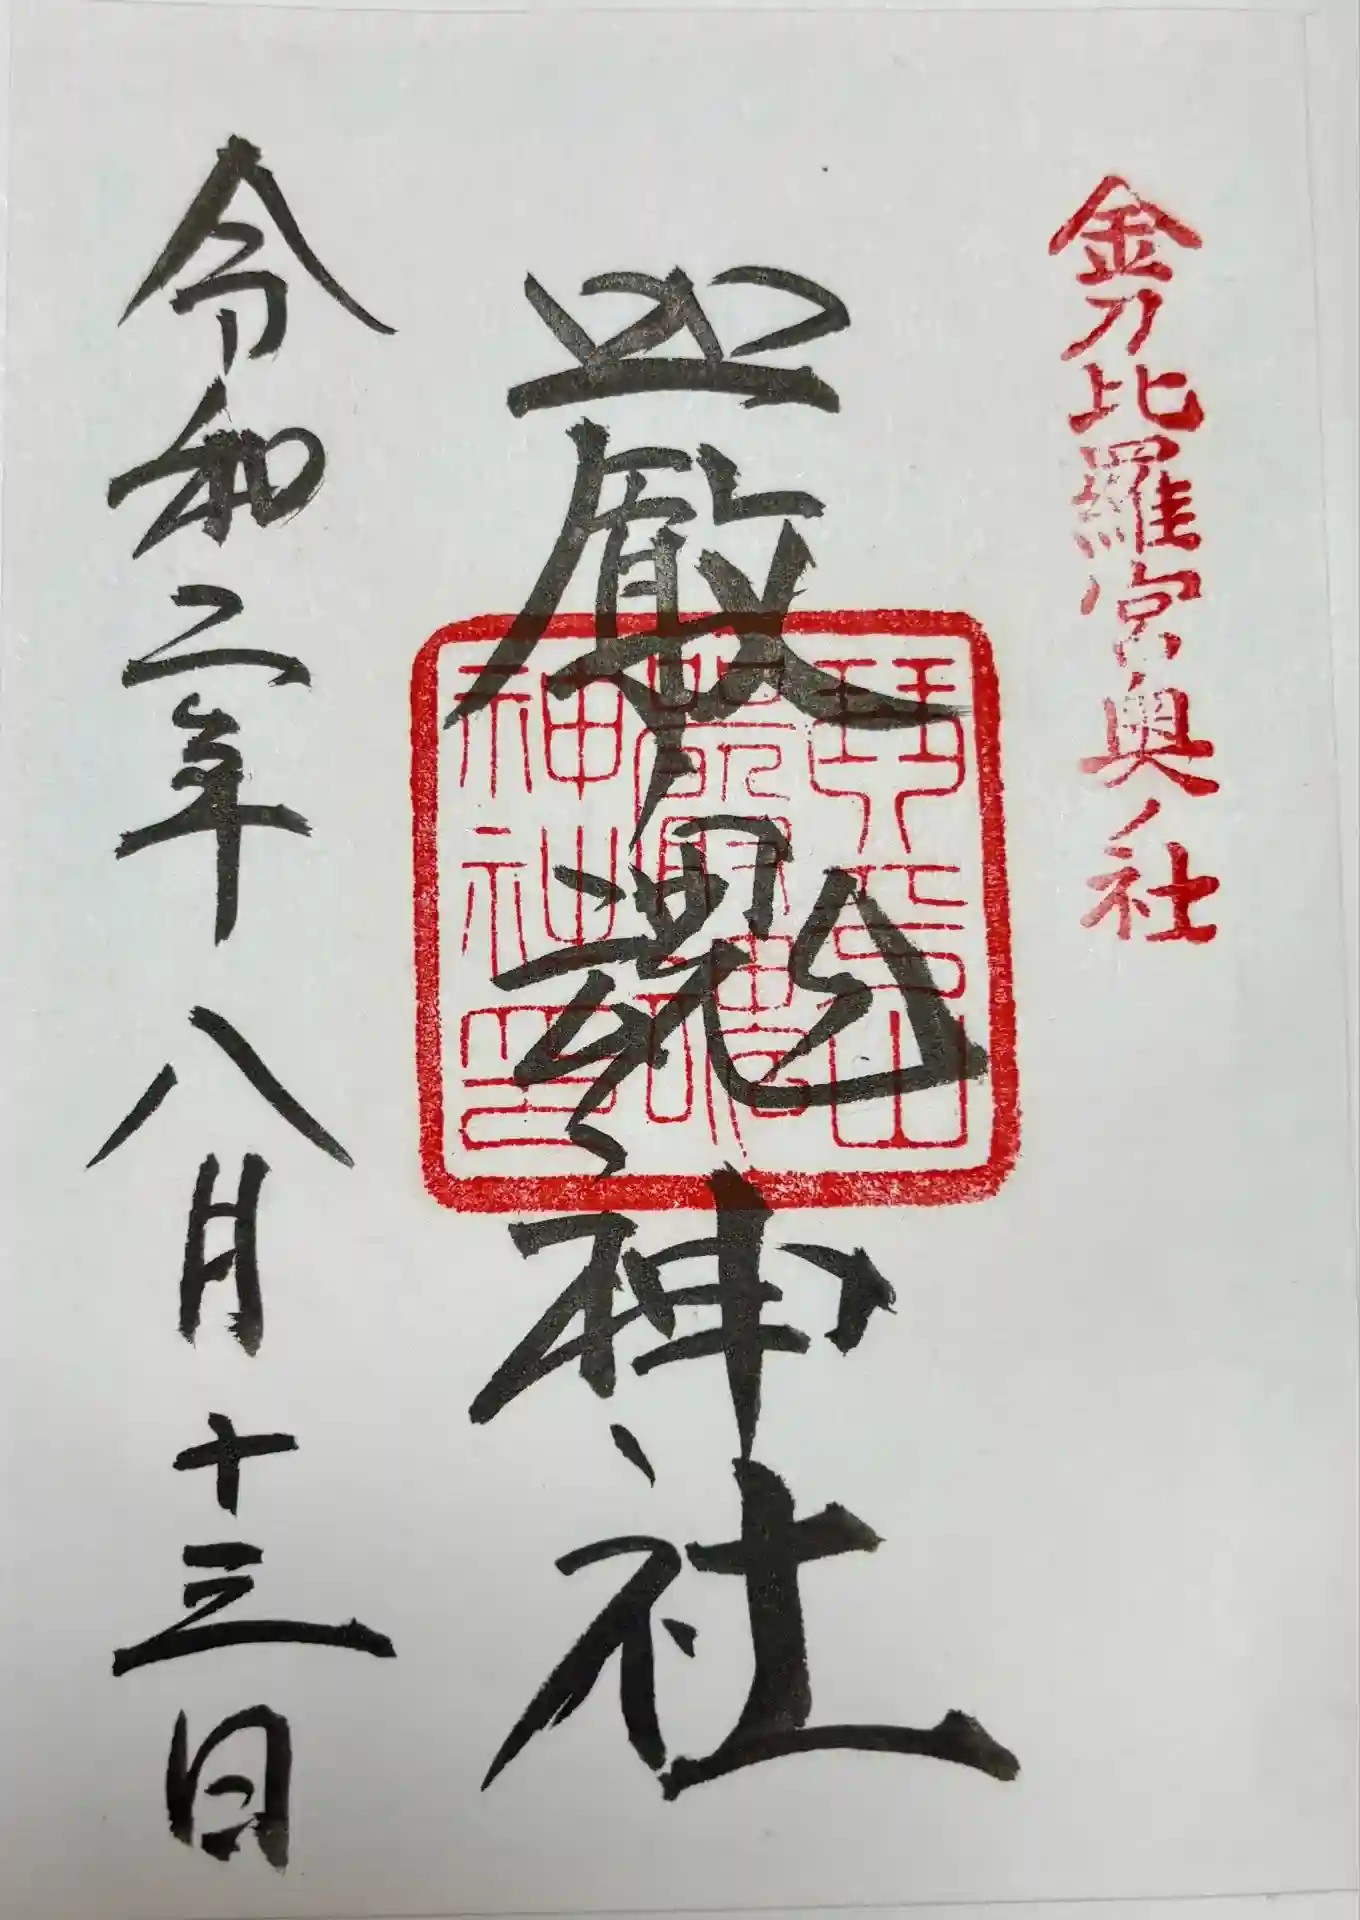 金刀比羅宮奥ノ社
厳魂神社
令和二年八月十三日
琴平山
厳魂神
神社印